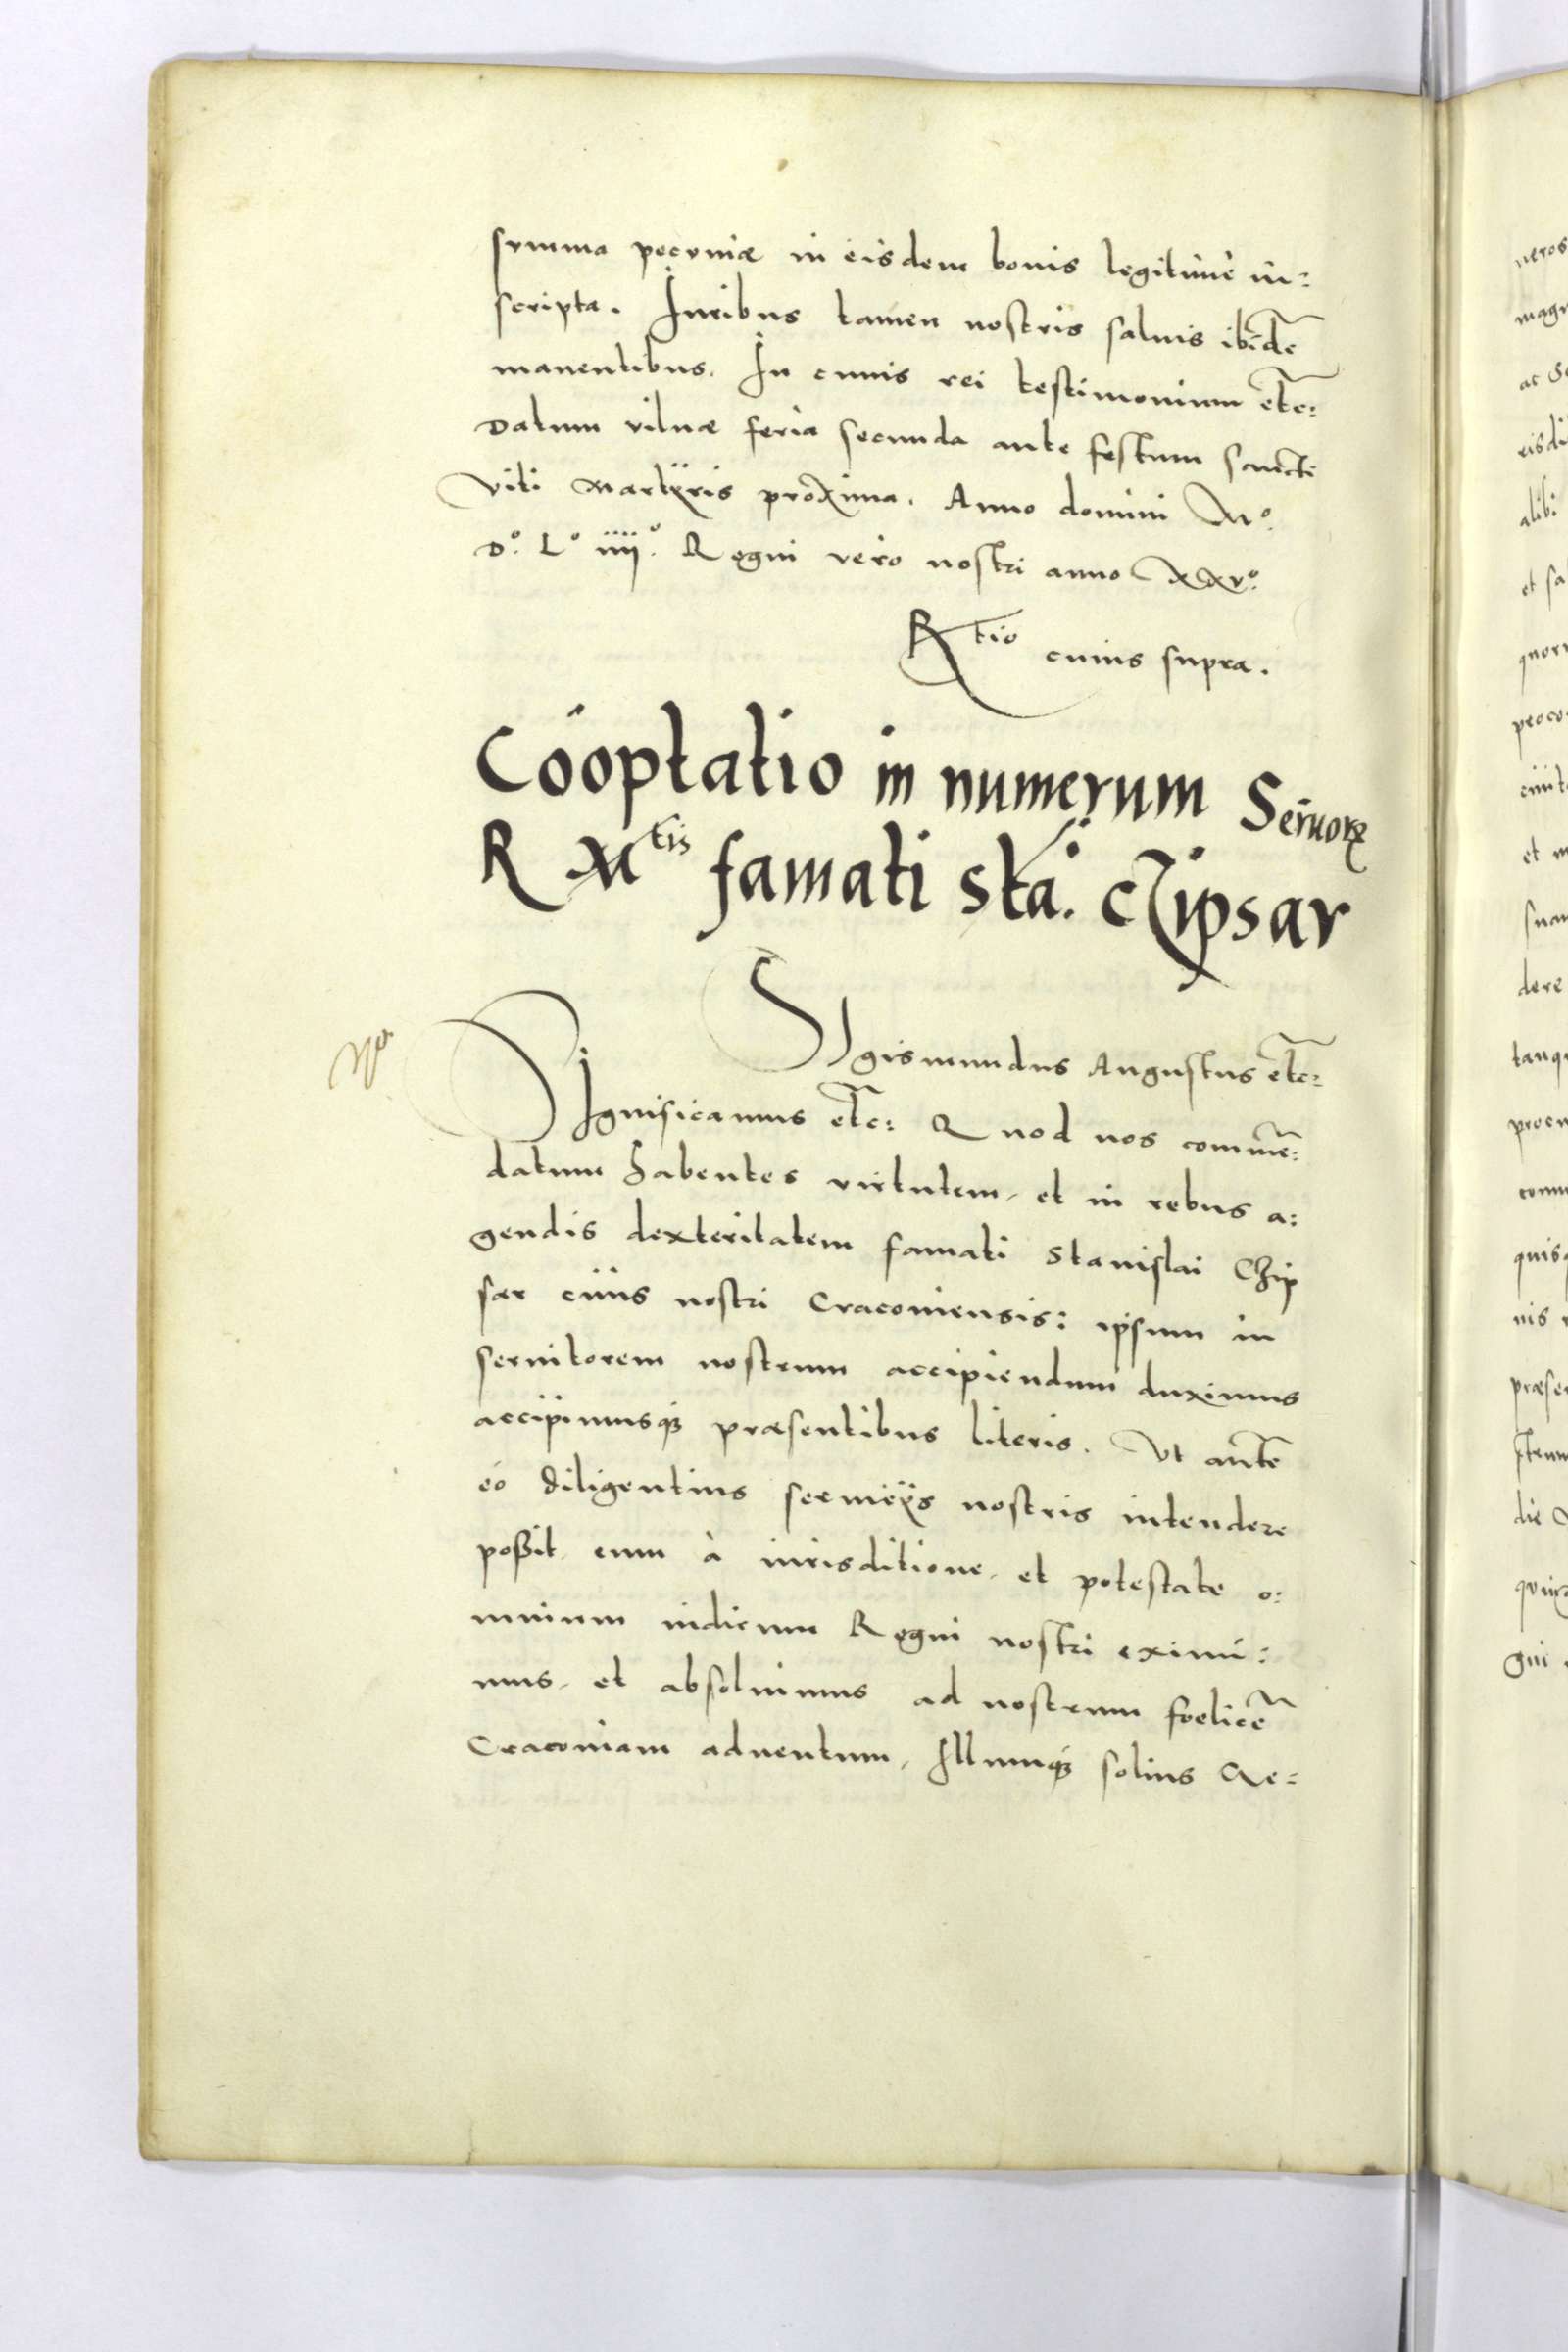 summa pecuniæ in eisdem bonis legitimè in:
scripta. Iuribus tamen nostris saluis ibidē
manentibus. In cuius rei testimonium etc:
Datum vilnæ feria secunda ante festum sancti
Viti Martÿris proxima. Anno domini Mº.
Dº. Lº iiijº. Regni vero nostri anno XXVº.
Rtio cuius supra.
Cóoptatio in numerum Seruorꝝ
R Mtis famati sta. Chipsar
SIgismundus Augustus etc:
SIgnificamus etc: Quod nos commē:
datum habentes virtutem, et in rebus a:
gendis dexteritatem famati Stanislai Chip
sar ciuis nostri Cracouiensis: ipsum in
seruitorem nostrum accipiendum duximus
accipimusqꝫ præsentibus literis. Vt autē
eó diligentius seruicÿs nostris intendere
poßit, eum à iurisditione, et potestate o:
mnium iudicum Regni nostri eximi:
mus, et absoluimus ad nostrum foelicē
Cracouiam aduentum, Illumqꝫ solius Re:
neros
magn
ac
eisdē
alibi
et sa
quor
proco
ciuit
et m
suam
dere
tanqu
procu
comm
quisq
nis
præse
strum
die
gni